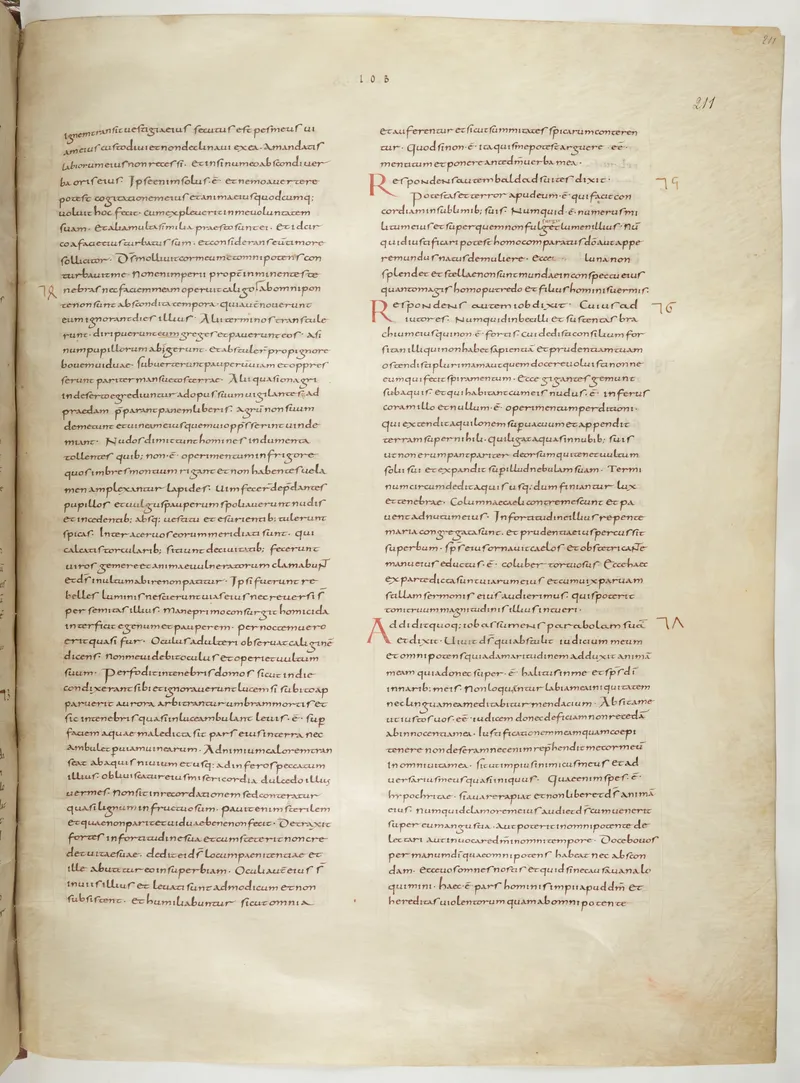 IOB
211
ignem transit uestigia eius secutus est pes meus ui
am eius custodiui et non declinaui ex ea. A mandatis
labiorum eius non recessi. et in sinu meo abscondi uer
ba oris eius. Ipse enim solus .ē. et nemo auertere
potest cogitationem eius et anima eius quodcumq;
uoluit hoc fecit. cum expleuerit in me uoluntatem
suam. et alia multa similia praesto sunt ei. et idcir
co a facie eius turbatus sum. et considerans eum timore
sollicitor. Ds molliuit cor meum et omnipotens con
turbauit me. Non enim perii propter inminentes te
78
nebras nec faciem meam operuit caligo. Ab omnipo
tente non sunt abscondita tempora. qui aūt nouerunt
eum ignorant dies illius. Alii terminos transtule
runt. diripuerunt greges et pauerunt eos. Asi
num pupillorum abigerunt. et abstuler̄ pro pignore
bouem uiduae. subuerterunt pauperū uiam et oppres
serunt pariter mansuetos terrae. Alii quasi onagri
in deserto egrediuntur ad opus suum uigilantes ad
praedam p̄parant panem liberis. Agrū non suum
demetunt et uineam eius quem ui opp̄sserint uinde
miant. Nudos dimittunt homines indumenta
tollentes quib; non .ē. operimentum in frigore
quos imbres montium rigant et non habentes uela
men amplexantur lapides. Uim fecer̄ dep̄dantes
pupillos et uulgus pauperum spoliauerunt nudis
et incedentib; absq; uestitu et esurientib; tulerunt
spicas. Inter aceruos eorum meridiati sunt. qui
calcatis torcularib; sitiunt de ciuitatib; fecerunt
uiros gemere et anima uulneratorum clamabit
et ds̄ inultum abire non patitur. Ipsi fuerunt re
belles lumini nescierunt uias eius nec reuersi s̄
per semitas illius. Mane primo consurgit homicida
interficit egenum et pauperem. per noctem uero
erit quasi fur. Oculus adulteri obseruat caliginē
dicens. non me uidebit oculus et operiet uultum
suum. Perfodit in tenebris domos sicut in die
condixerant sibi et ignorauerunt lucem si subito ap
paruerit aurora arbitrantur umbram mortis et
sic in tenebris quasi in luce ambulant. Leuis .ē. sup
faciem aquae maledicta sit pars eius in terra nec
ambulet per uiam uinearum. Ad nimium calorem tran
seat ab aquis niuium et usq; ad inferos peccatum
illius. obliuiscatur eius misericordia dulcedo illius
uermes. Non sit in recordatione sed conteratur
quasi lignum infructuosum. pauit enim sterilem
et quae non parit et uiduae bene non fecit. Detraxit
fortes in fortitudine sua et cum steterit non cre
det uitae suae. dedit ei ds̄ locum paenitentiae et
ille abutitur eo in superbiam. Oculi aūt eius s̄
in uiis illius et leuati sunt ad modicum et non
subsistent. et humiliabuntur sicut omnia
et auferentur et sicut summitates spicarum conteren
tur. Quod si non .ē. ita quis me potest arguere .ee.
mentitum et ponere ante dm̄ uerba mea.
Respondens autem baldad suites dixit.
75
Potestas et terror apud eum .ē. qui facit con
cordiam in sublimib; suis. Numquid .ē. numerus mi
litum eius et super quem non fulget lumen illius. nū
quid iustificari potest homo comparatus dō aut appe
re mundus natus de muliere. Ecce luna non
splendet et stellae non sunt mundae in conspectu eius
quanto magis homo putredo et filius hominis uermis.
Respondens autem iob dixit. Cuius ad
76
iutor es. Numquid inbecilli et sustentas bra
chium eius qui non .ē. fortis. cui dedisti consilium for
sitan illi qui non habet sapientiā et prudentiam tuam
ostendisti plurimam aut quem docere uoluisti nonne
eum qui fecit spiramentum. Ecce gigantes gemunt
sub aquis et qui habitant cum eis nudus .ē. infernus
coram illo et nullum .ē. operimentum perditioni.
qui extendit aquilonem super uacuum et appendit
terram super nihili. qui ligat aquas in nubib; suis
ut non erumpant pariter deorsum qui tenet uultum
solii sui et expandit sup illud nebulam suam. Termi
num circumdedit aquis usq; dum finiantur lux
et tenebrae. Columnae caeli contremescunt et pa
uent ad nutum eius. In fortitudine illius repente
maria congregata sunt. et prudentia eius percussit
superbum. sps̄ eius ornauit caelos et obstetricante
manu eius eductus .ē. coluber tortuosus. Ecce haec
ex parte dicta sunt uiarum eius et cum uix paruam
stillam sermonis eius audierimus. quis poterit
tonitruum magnitudinis illius intueri.
Addidit quoq; iob assumens parabolam suā
77
et dixit. Uiuit ds̄ qui abstulit iudicium meum
et omnipotens qui ad amaritudinem adduxit animā
meam quia donec super .ē. halitus in me et sps̄ dī
in narib; meis. Non loquentur labia mea iniquitatem
nec lingua mea meditabitur mendacium. Absit a me
ut iustos uos .eē. iudicem donec deficiam non recedā
ab innocentia mea. Iustificationem meam quam coepi
tenere non deseram nec enim rep̄hendit me cor meū
in omni uita mea. sicut impius inimicus meus et ad
uersarius meus quasi iniquus. Quae enim spes .ē.
hypochritae. si auare rapiat et non liberet ds̄ animā
eius. Numquid clamorem eius audiet ds̄ cum uenerit
super eum angustia. Aut poterit in omnipotente de
lectari aut inuocare dm̄ in omni tempore. Docebo uos
per manum dī quae omnipotens habeat nec abscon
dam. Ecce uos omnes nostis et quid sine causa uana lo
quimini. haec .ē. pars hominis impii apud dm̄ et
hereditas uiolentorum quam ab omnipotente